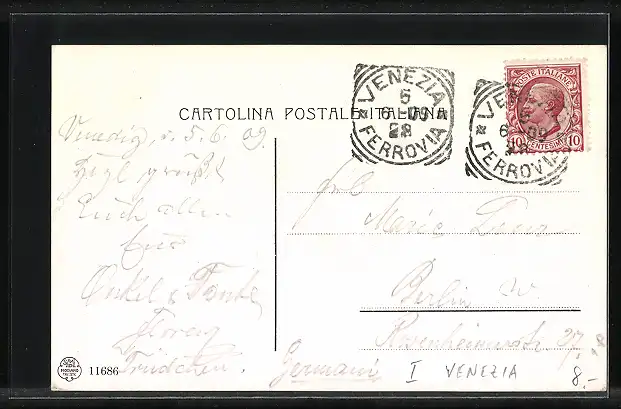 CARTOLINA POSTALE ITALIANA
VENEZIA
5
6-09
28
FERROVIA
VENEZIA
5
6 09
28
FERROVIA
POSTE ITALIANE
10 CENTESIMI 10
Venedig, d. 5.6.09.
grüßt
Euch allen
Eure
Onkel & Tante
Trüdchen.
Frl.
Marie
Berlin W.
Rosenheimerstr. 27
Germania
I VENEZIA
8.-
11686